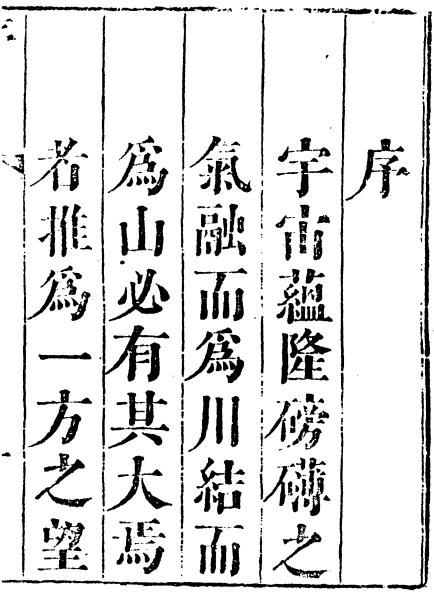 序
宇宙蘊隆磅礴之
氣融而爲川結而
爲山必有其大焉
者推爲一方之望